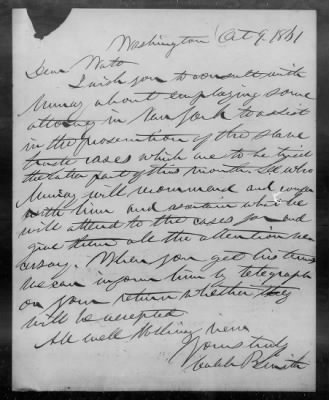 Washington Oct 9. 1861
Dear Watt
I wish you to consult with
Murray about employing some
attorney in New York to assist
in the prosecution of the slave
trade cases which are to be tried
the latter part of this month. See who
Murray will recommend and confer
with him and ascertain what he
will attend to the cases for and
give them all the attention nec
essary. When you get his terms
we can inform him by telegraph
on your return whether they
will be accepted
All well Nothing new
Yours truly
Caleb B Smith